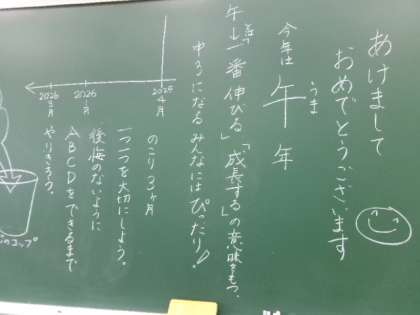 あけまして
おめでとうございます
今年は
午年
うま
午=「一番伸びる」「成長する」の意味をもつ。
中3になるみんなにはぴったり!
2025
4月
2026
1月
2026
3月
のこり3ヶ月
一つ一つを大切にしよう。
後悔のないように
ABCDをできるまで
やりきろう。
のコップ